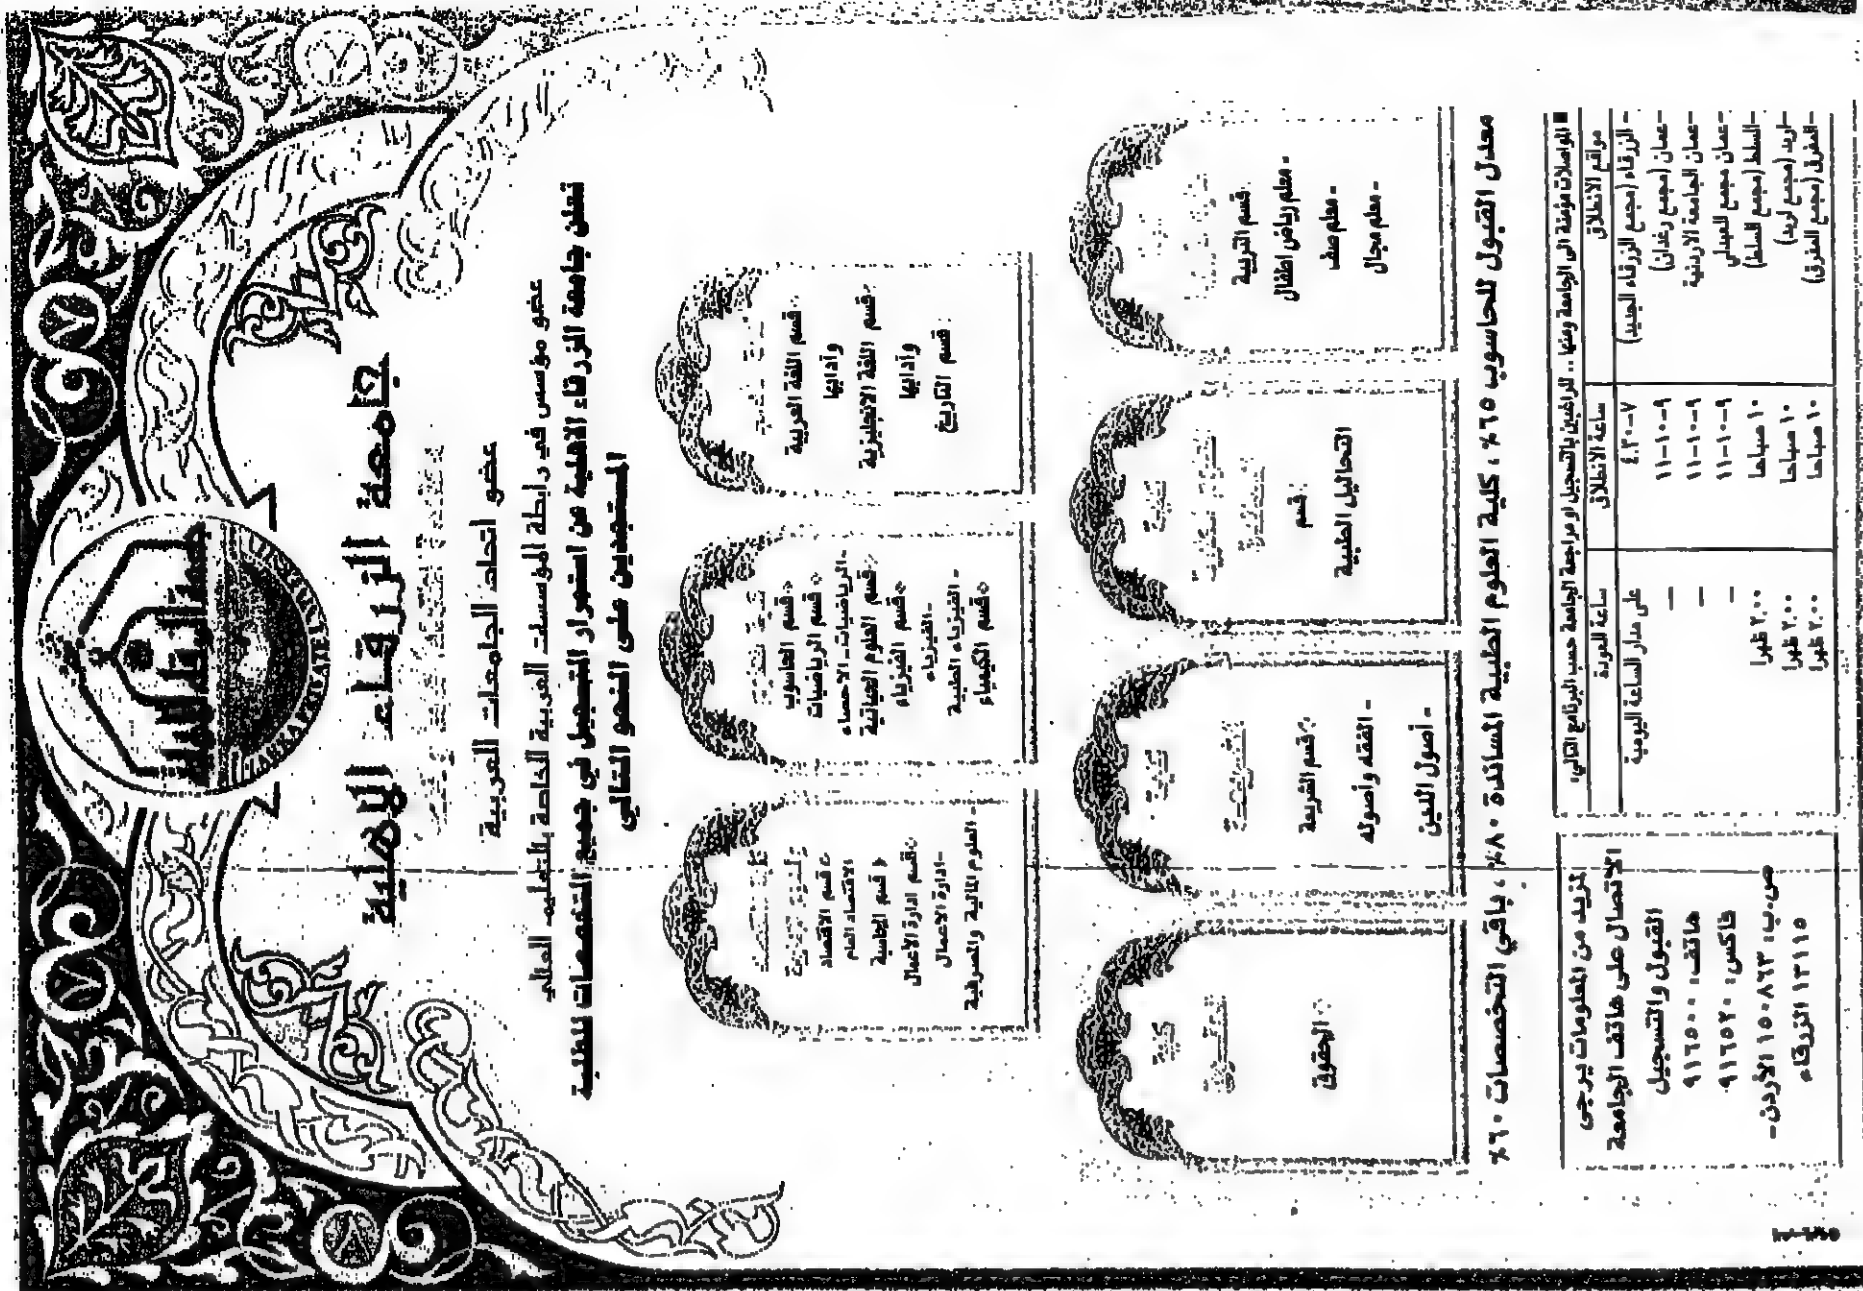 جامعة الزرقاء
ZARKA PRIVATE UNIVERSITY
جامعة الزرقاء الاهلية
عضو اتحاد الجامعات العربية
عضو مؤسس في رابطة المؤسسات العربية الخاصة بالتعليم العالي
تعلن جامعة الزرقاء الاهلية عن استمرار التسجيل في جميع التخصصات للطلبة
المستجدين على النحو التالي
قسم اللغة العربية
وآدابها
قسم اللغة الانجليزية
وآدابها
قسم التاريخ
قسم الحاسوب
قسم الرياضيات
-الرياضيات-الاحصاء
قسم العلوم الحياتية
قسم الفيزياء
-الفيزياء
-الفيزياء الطبية
قسم الكيمياء
قسم الاقتصاد
الاقتصاد العام
قسم المحاسبة
قسم ادارة الاعمال
-ادارة الاعمال
-العلوم المالية والمصرفية
قسم التربية
-معلم رياض اطفال
-معلم صف
-معلم مجال
كلية
قسم
التحاليل الطبية
كلية
الشريعة
قسم الشريعة
-الفقه وأصوله
-أصول الدين
كلية
الحقوق
الحقوق
معدل القبول للحاسوب ٦٥٪، كلية العلوم الطبية المساندة ٨٠٪، باقي التخصصات ٦٠٪
■ المواصلات مؤمنة الى الجامعة ومنها.. للراغبين بالتسجيل او مراجعة الجامعة حسب البرنامج التالي:
مواقع الانطلاق ساعة الانطلاق ساعة العودة
-الزرقاء (مجمع الزرقاء الجديد) ٧-٤.٣٠ على مدار الساعة اليومية
-عمان (مجمع رغدان) ٩-١٠-١١ —
-عمان الجامعة الاردنية ٩-١٠-١١ —
-عمان مجمع العبدلي ٩-١٠-١١ —
-السلط (مجمع السلط) ١٠ صباحا ٢,٠٠ ظهرا
-اربد (مجمع اربد) ١٠ صباحا ٢,٠٠ ظهرا
-المفرق (مجمع المفرق) ١٠ صباحا ٢,٠٠ ظهرا
لمزيد من المعلومات يرجى
الاتصال على هاتف الجامعة
القبول والتسجيل
هاتف: ٩١٦٥٠٠
فاكس: ٩١٦٥٢٠
ص.ب: ١٥٠٨٦٣ الأردن-
١٣١١٥ الزرقاء